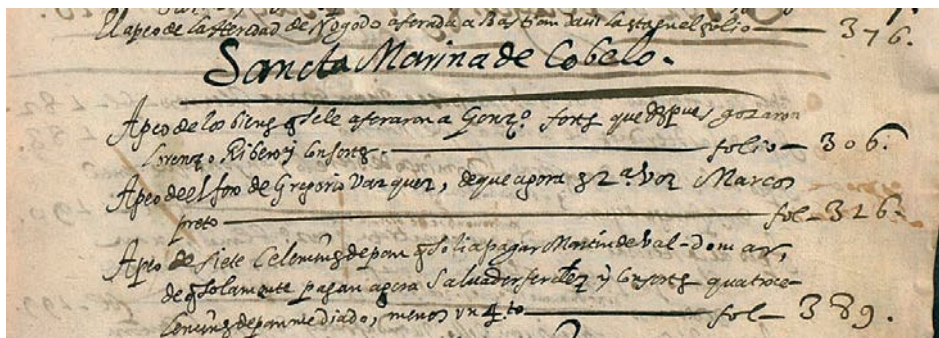 El apeo de la Heredad de Negodo aforada a Bastian esta en el folio — 376.
Sancta Marina de Cobelo.
Apeo de los bienes q se le aforaron a Gonzº. forts que despues gozaron
Lorenzo Ribero y Consorts. — folio — 306.
Apeo de el foro de Gregorio Vazquez, de que agora es Voz Marcos
preto — fol — 326.
Apeo de siete Celemins de pan q solia pagar Martin de Val-Domar,
de q solamente pagan agora Salvador ferdez y Consorts quatro ce-
lemins de pan mediado, menos un 4to — fol — 389.